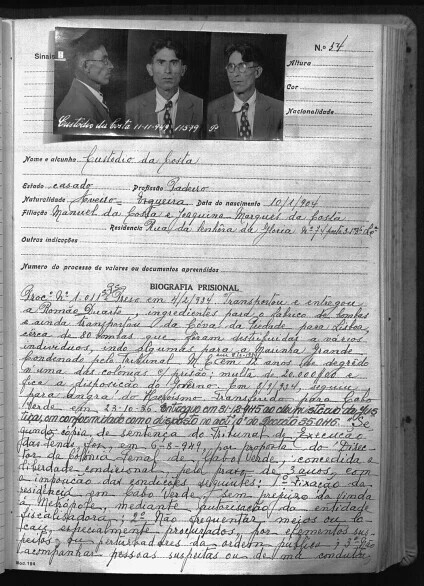 Sinais
N.º 54
Altura
Cor
Nacionalidade
Custódio da Costa 11-11-949
Nome e alcunho Custódio da Costa
Estado casado Profissão Padeiro
Naturalidade Aveiro - Data do nascimento 10/1/904
Filiação Manuel da Costa e Joaquina Marques da Costa
Residencia Rua da Senhora da Gloria Nº
Outras indicações
Numero do processo de valores ou documentos apreendidos
BIOGRAFIA PRISIONAL
Procº Nº 1.011 Preso em 4/2/934. Transportou e entregou
a Romão Duarte, ingredientes para o fabrico de bombas
e ainda transportou da Cova da Piedade para Lisboa,
cerca de 80 bombas que foram destribuidas a varios
individuos, indo algumas para a Marinha Grande.
Condenado pelo Tribunal M. E. em 12 anos de degredo
n'uma das colonias c/ prisão; multa de 20.000$00
fica à disposição do Governo. Em 8/9/934, seguiu
para Angra do Heroismo. Transferido para Cabo
Verde em 23-10-36. Entregue em 31-12-945 ao
tiça, em conformidade com o disposto no Decreto 35.046. "Se
gundo cópia de sentença do Tribunal de Execução
das Penas, foi, em 6-8-949, por proposta do "Direc
tor da Colonia Penal de Cabo Verde, concedida a
liberdade condicional, pelo prazo de 3 anos, com
a imposição das condições seguintes: 1ª Fixação da
residência em Cabo Verde, sem prejuizo da vinda
à Metrópole, mediante autorização da entidade
fiscalisadora; 2ª Não frequentar meios ou lo
cais, especialmente procurados, por elementos sus
peitos ou perturbadores da ordem publica; 3ª Não
acompanhar pessoas suspeitas ou de má conduta
Mod. 194